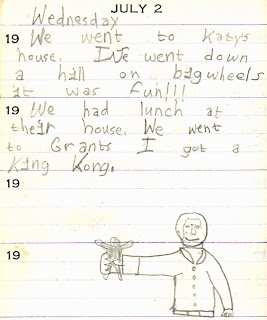 JULY 2
Wednesday
19 We went to Katys
house. We went down
a hill on big wheels
it was fun!!!
19 We had lunch at
their house. We went
to Grants I got a
King Kong.
19
19